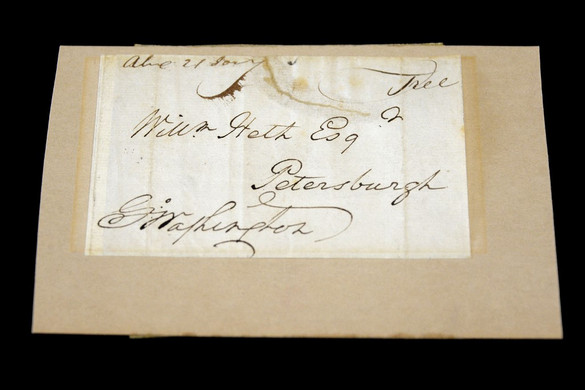 21 Free
Willm Heth Esqr
Petersburgh
Go: Washington